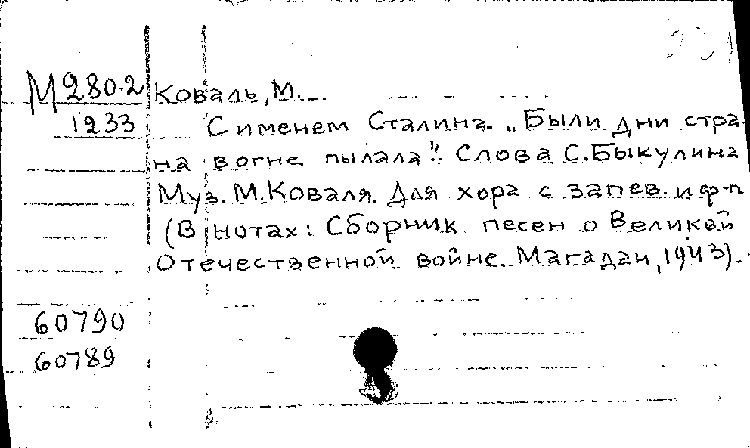 М280.2 Коваль, М.
1233 С именем Сталина. „Были дни стра
на в огне пылала". Слова С. Быкулина
Муз. М. Коваля. Для хора с запев. и ф-п
(В нотах: Сборник песен о Великой
Отечественной войне. Магадан, 1943).
60790
60789